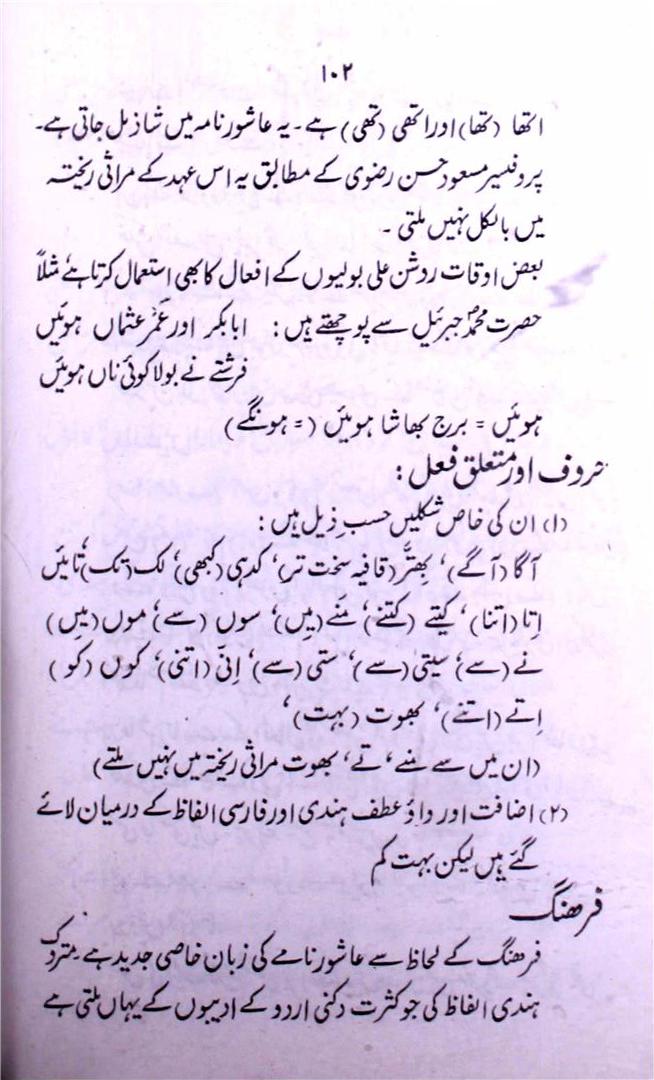 ۱۰۲
اتھا (تھا) اور اتھی (تھی) ہے۔ یہ عاشور نامہ میں شاذ مل جاتی ہے۔
پروفیسر مسعود حسن رضوی کے مطابق یہ اس عہد کے مراثی ریختہ
میں بالکل نہیں ملتی۔
بعض اوقات روشن علی بولیوں کے افعال کا بھی استعمال کرتا ہے مثلاً
حضرت محمدؐ جبرئیل سے پوچھتے ہیں: ابابکر اور عمر عثماں ہوئیں
فرشتے نے بولا کوئی ناں ہوئیں
ہوئیں = برج بھاشا ہوئیں (= ہونگے)
حروف اور متعلق فعل:
(۱) ان کی خاص شکلیں حسب ذیل ہیں:
آگا (آگے)، بھتر (قافیہ سخت تر)، کدہی (کبھی)، لک (تک)، تائیں
اِتا (اتنا)، کیتے (کتنے)، منے (میں)، سوں (سے)، موں (میں)
نے (سے)، سیتی (سے)، ستی (سے)، اِتی (اتنی)، کوں (کو)
اِتے (اتنے)، بھوت (بہت)،
(ان میں سے منے، تے، بھوت مراثی ریختہ میں نہیں ملتے)
(۲) اضافت اور واؤ عطف ہندی اور فارسی الفاظ کے درمیان لائے
گئے ہیں لیکن بہت کم
فرھنگ
فرھنگ کے لحاظ سے عاشور نامے کی زبان خاصی جدید ہے۔ متروک
ہندی الفاظ کی جو کثرت دکنی اردو کے ادیبوں کے یہاں ملتی ہے